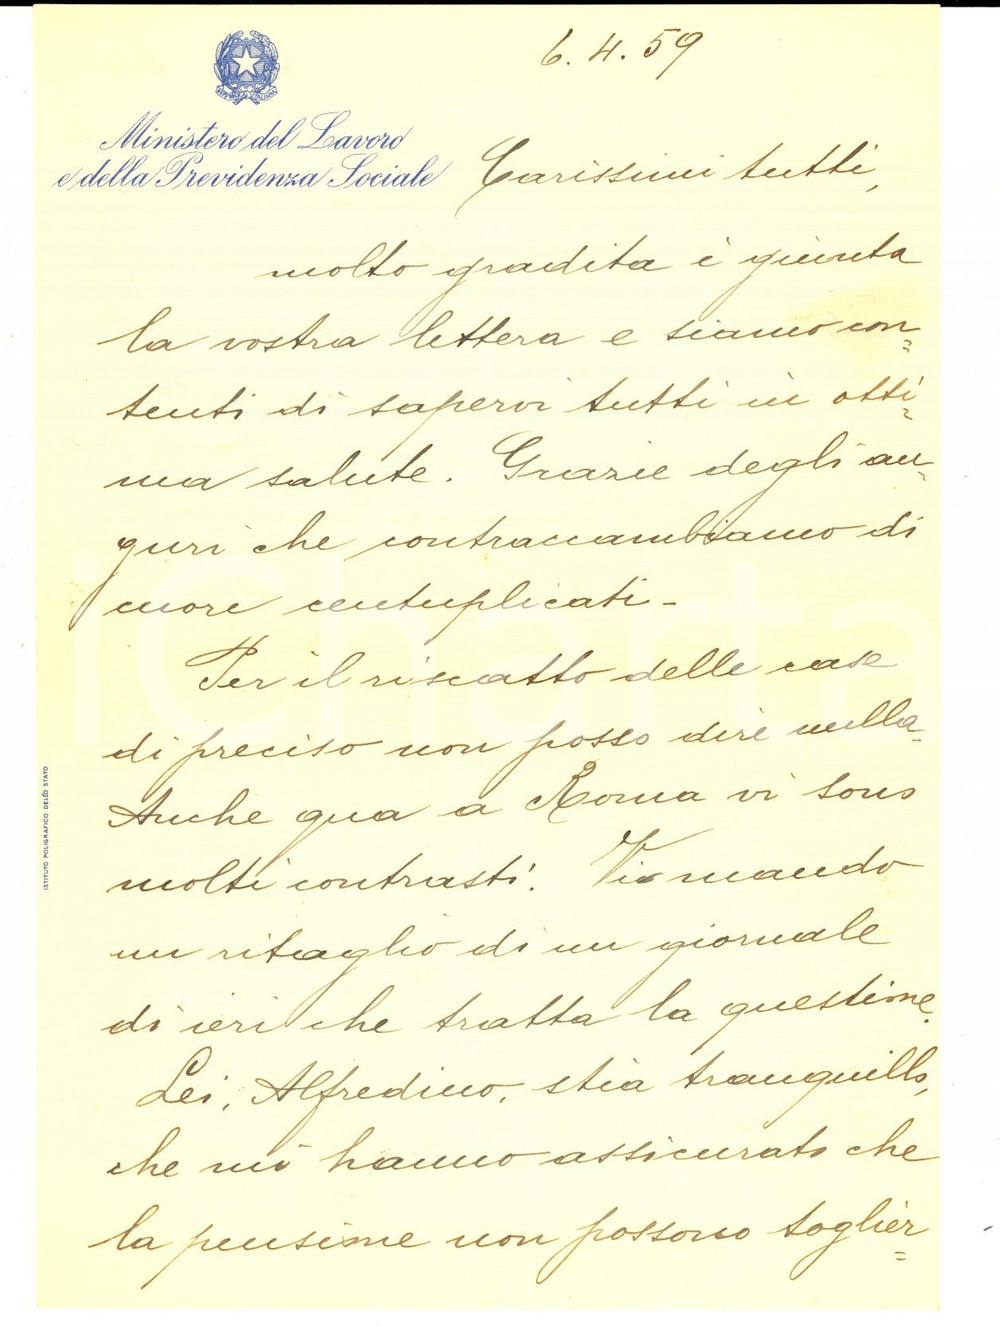 6.4.59
REPVBBLICA ITALIANA
Ministero del Lavoro
e della Previdenza Sociale
Carissimi tutti,
molto gradita è giunta
la vostra lettera e siamo con=
tenti di sapervi tutti in otti=
ma salute. Grazie degli au=
guri che contraccambiamo di
cuore centuplicati -
Per il riscatto delle case
di preciso non posso dire nulla.
Anche qua a Roma vi sono
molti contrasti. Vi mando
un ritaglio di un giornale
di ieri che tratta la questione.
Lei, Alfredino, stia tranquillo,
che mi hanno assicurato che
la pensione non possono toglier=
ISTITUTO POLIGRAFICO DELLO STATO
iCharta